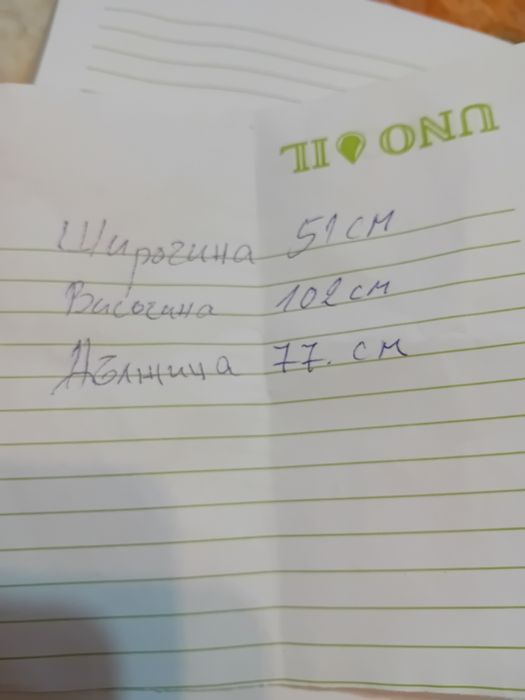 UNO OIL
Широчина 51 см
Височина 102 см
Дължина 77. см